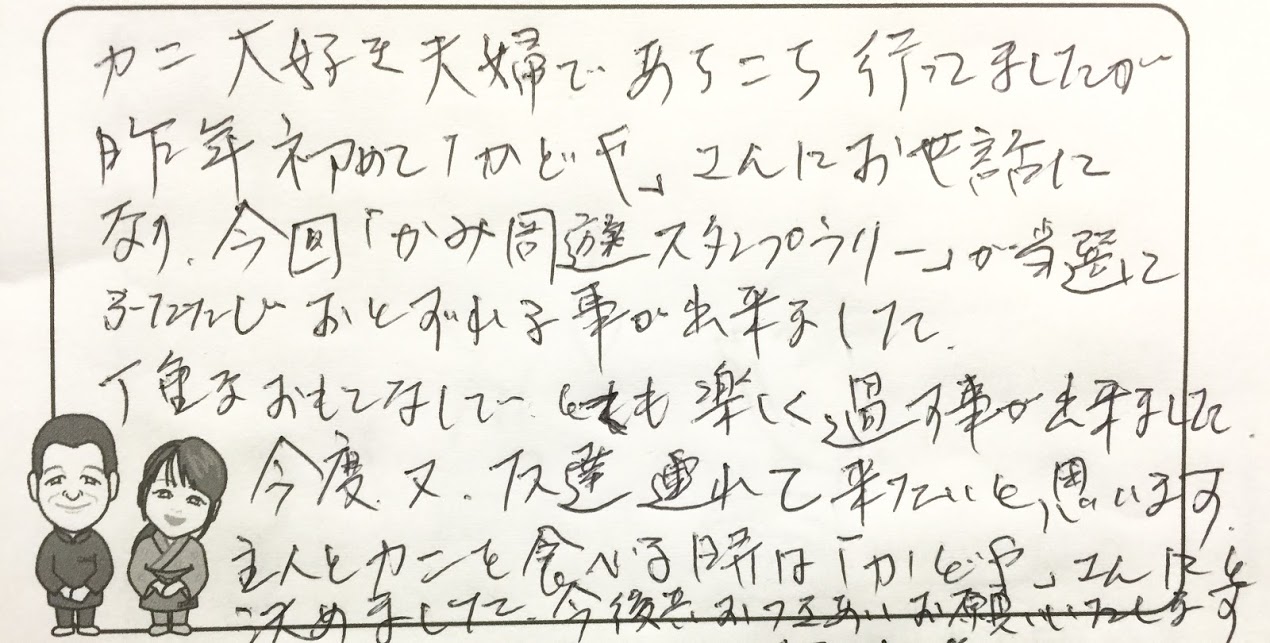 カニ大好き夫婦であちこち行ってましたが
昨年初めて「かどや」さんにお世話に
なり、今回「かみ周遊スタンプラリー」が当選して
ふたたびおとずれる事が出来ました。
丁重なおもてなしで、とても楽しく過す事が出来ました。
今度、又、友達連れて来たいと思います。
主人とカニを食べる時は「かどや」さんにと
決めました。今後共おつきあいお願いいたします